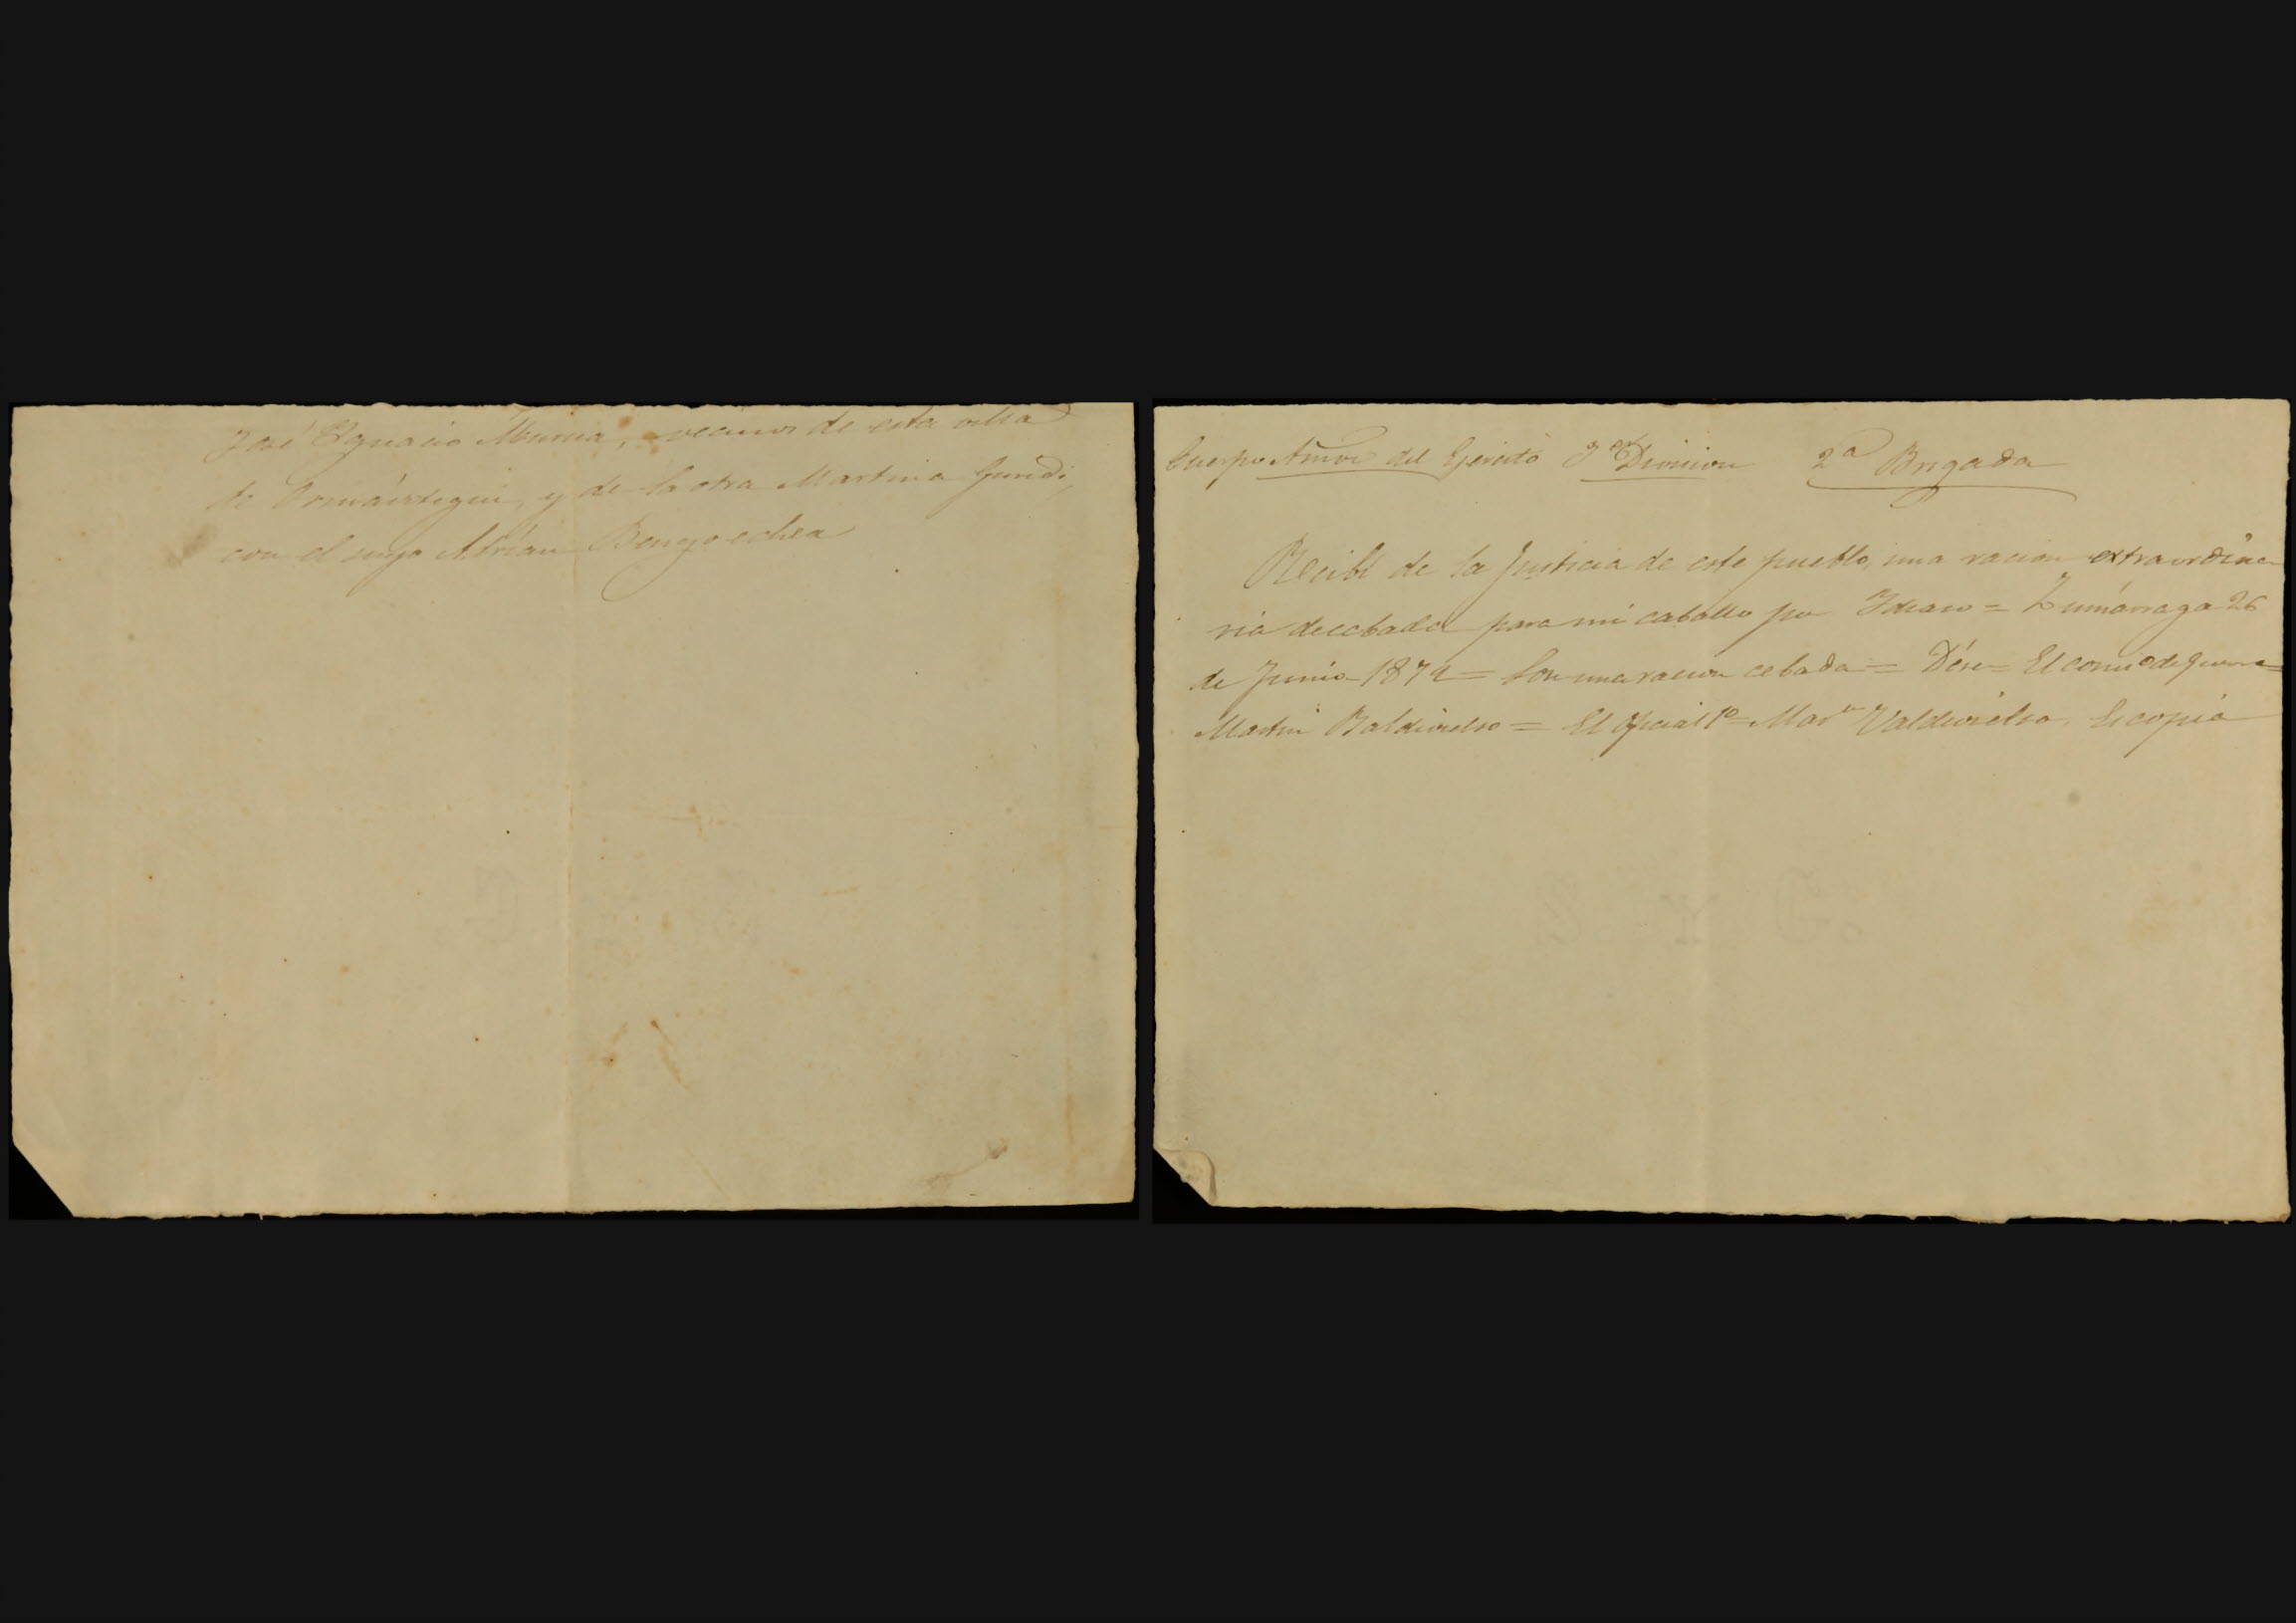 José Ygnacio Murua, vecinos de esta villa
de Ormaiztegui, y de la otra Martina Juridi,
con el suyo Adrian Bengoechea
Cuerpo del Ejército Division 2ª Brigada
Recibí de la Justicia de este pueblo, una racion extraordina
ria de cebada para mi caballo Zumárraga 26
de Junio 1872 = Son una racion cebada = Dése = El comiº de guerra =
Martin Baldivielso = El Oficial 1º = Marⁿ Valdivielso. Es copia